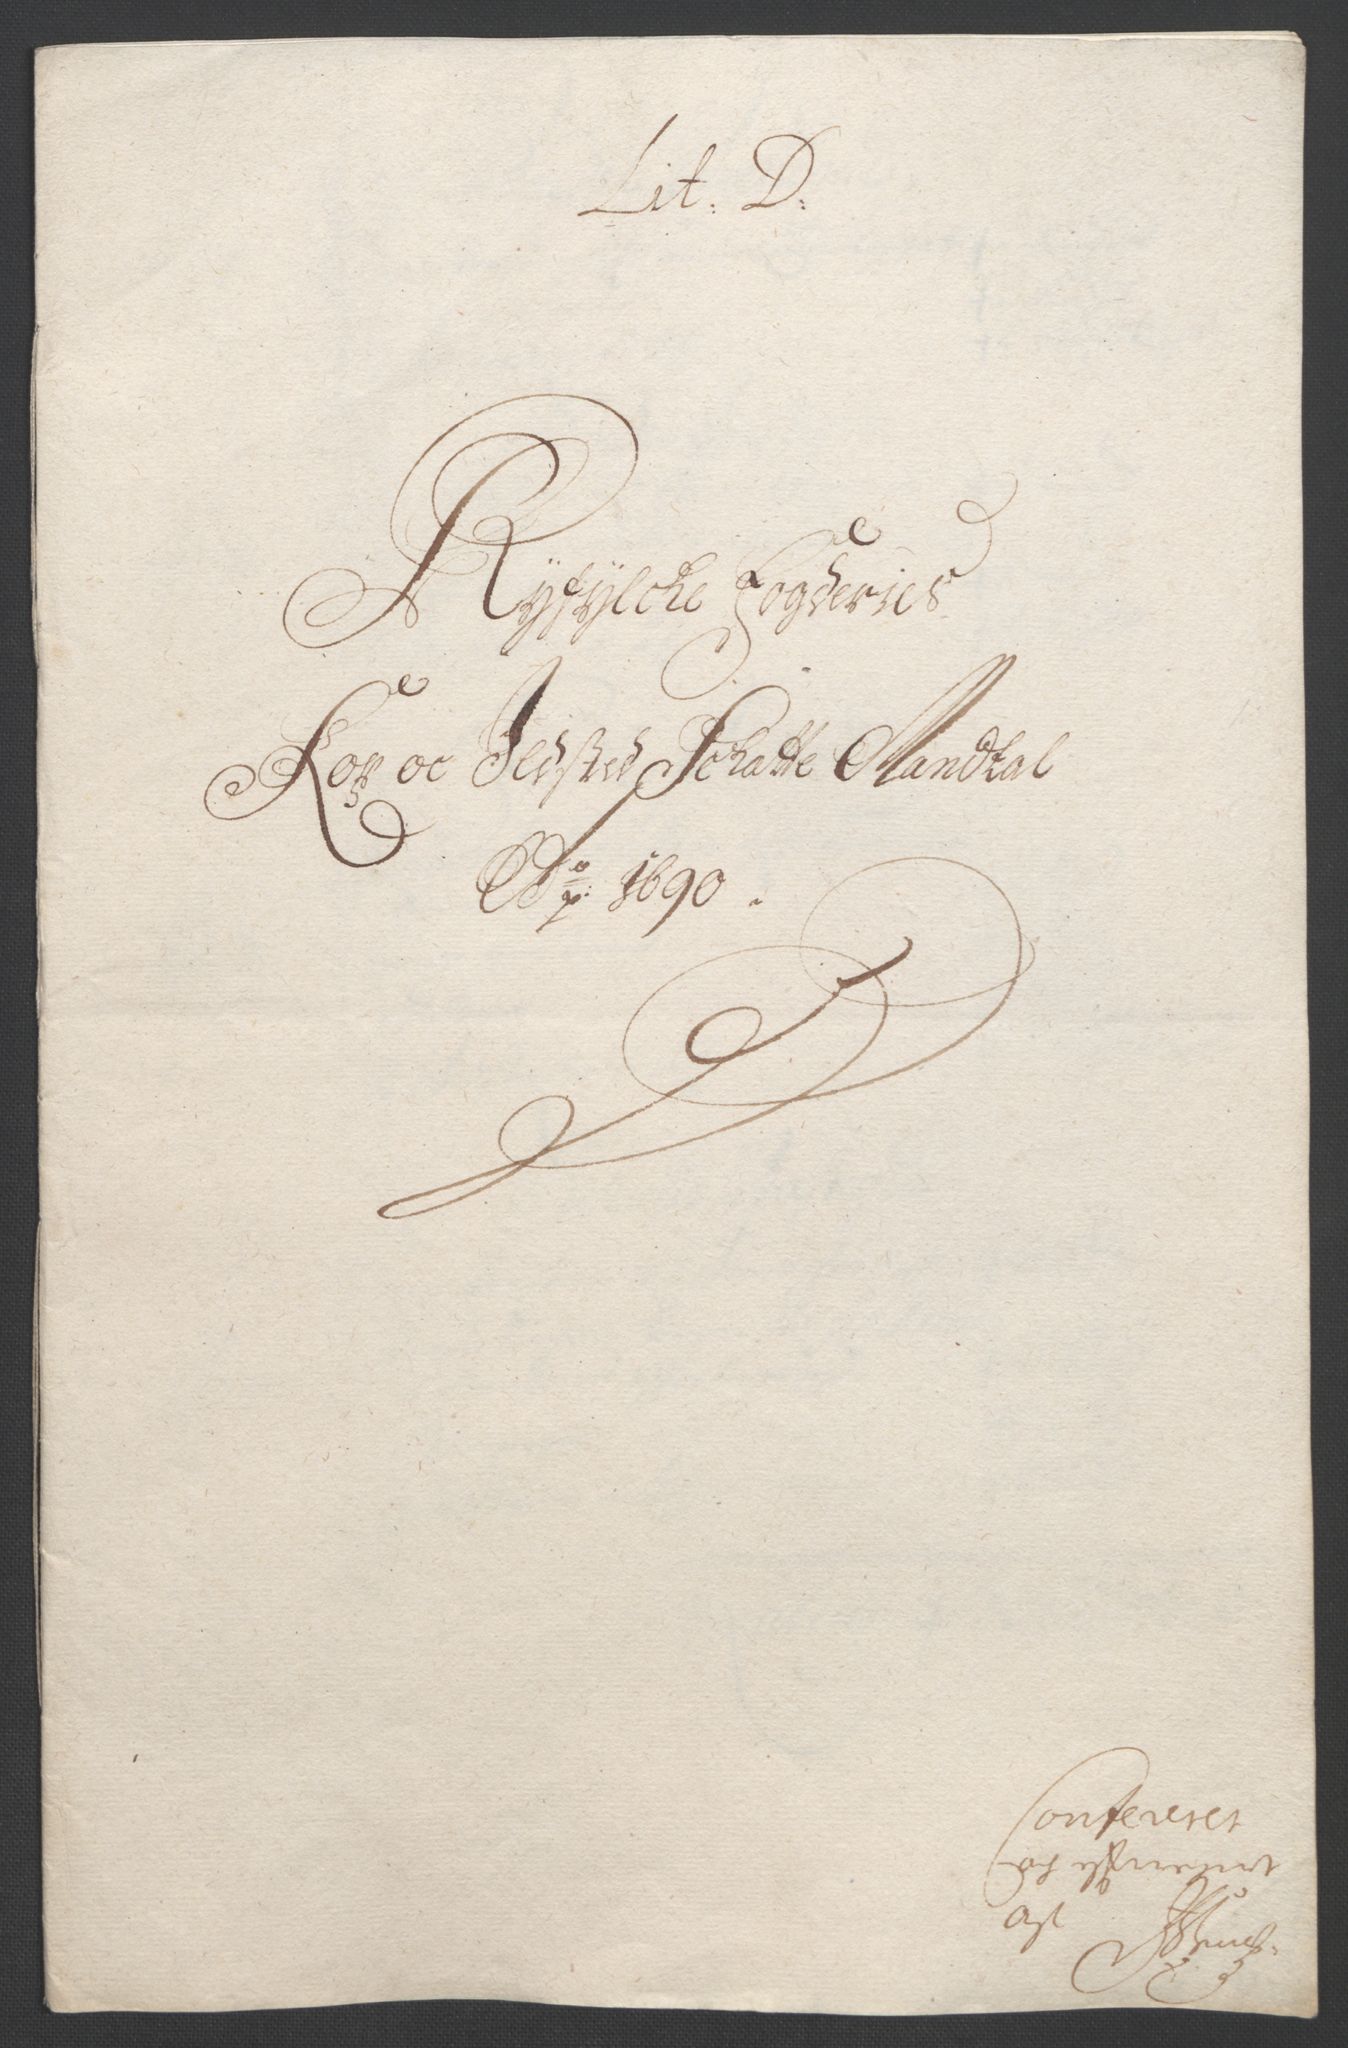 Lit. D.
Ryfylcke Fogderies
Kop oc Ildsted Schatte Mandtal
Ao 1690.
Confereret
og
af